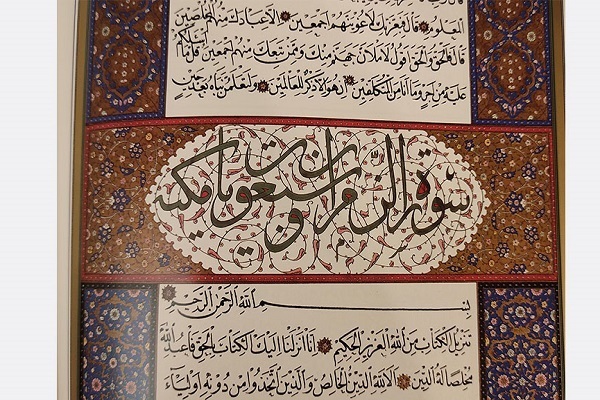 المَعْلُومِ قَالَ فَبِعِزَّتِكَ لَأُغْوِيَنَّهُمْ أَجْمَعِينَ إِلَّا عِبَادَكَ مِنْهُمُ المُخْلَصِينَ
قَالَ فَالحَقُّ وَالحَقَّ أَقُولُ لَأَمْلَأَنَّ جَهَنَّمَ مِنْكَ وَمِمَّنْ تَبِعَكَ مِنْهُمْ أَجْمَعِينَ قُلْ مَا أَسْئَلُكُمْ
عَلَيْهِ مِنْ أَجْرٍ وَمَا أَنَا مِنَ المُتَكَلِّفِينَ إِنْ هُوَ إِلَّا ذِكْرٌ لِلْعَالَمِينَ وَلَتَعْلَمُنَّ نَبَأَهُ بَعْدَ حِينٍ
سُورَةُ الزُّمَرِ وسبعون مكية
بِسْمِ اللهِ الرَّحْمٰنِ الرَّحِيمِ
تَنْزِيلُ الكِتَابِ مِنَ اللهِ العَزِيزِ الحَكِيمِ إِنَّا أَنْزَلْنَا إِلَيْكَ الكِتَابَ بِالحَقِّ فَاعْبُدِ اللهَ
مُخْلِصًا لَهُ الدِّينَ أَلَا لِلهِ الدِّينُ الخَالِصُ وَالَّذِينَ اتَّخَذُوا مِنْ دُونِهِ أَوْلِيَاءَ